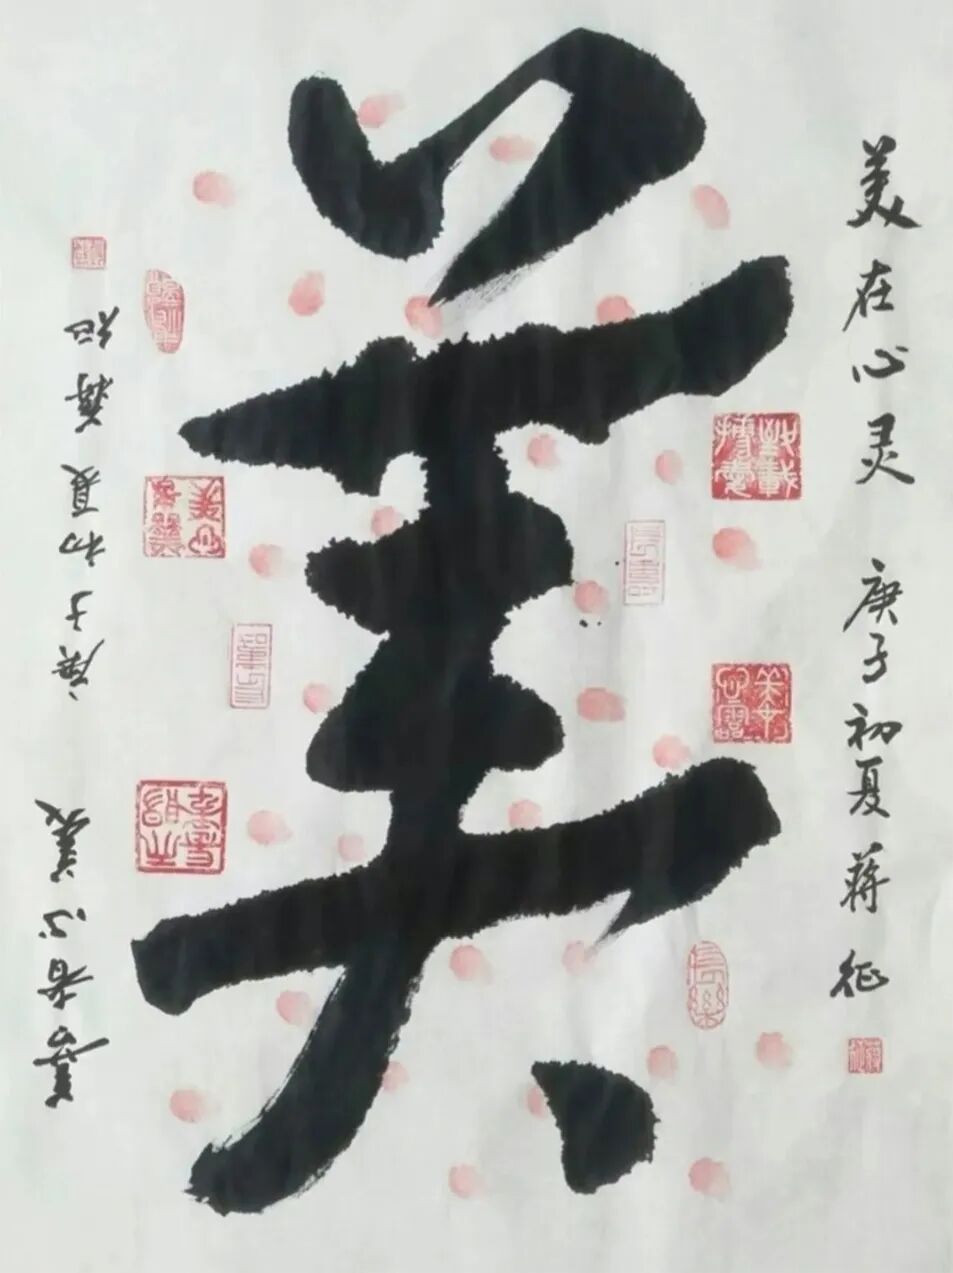 美在心灵 庚子初夏 蒋征
美
善者心美 庚子初夏 蒋征